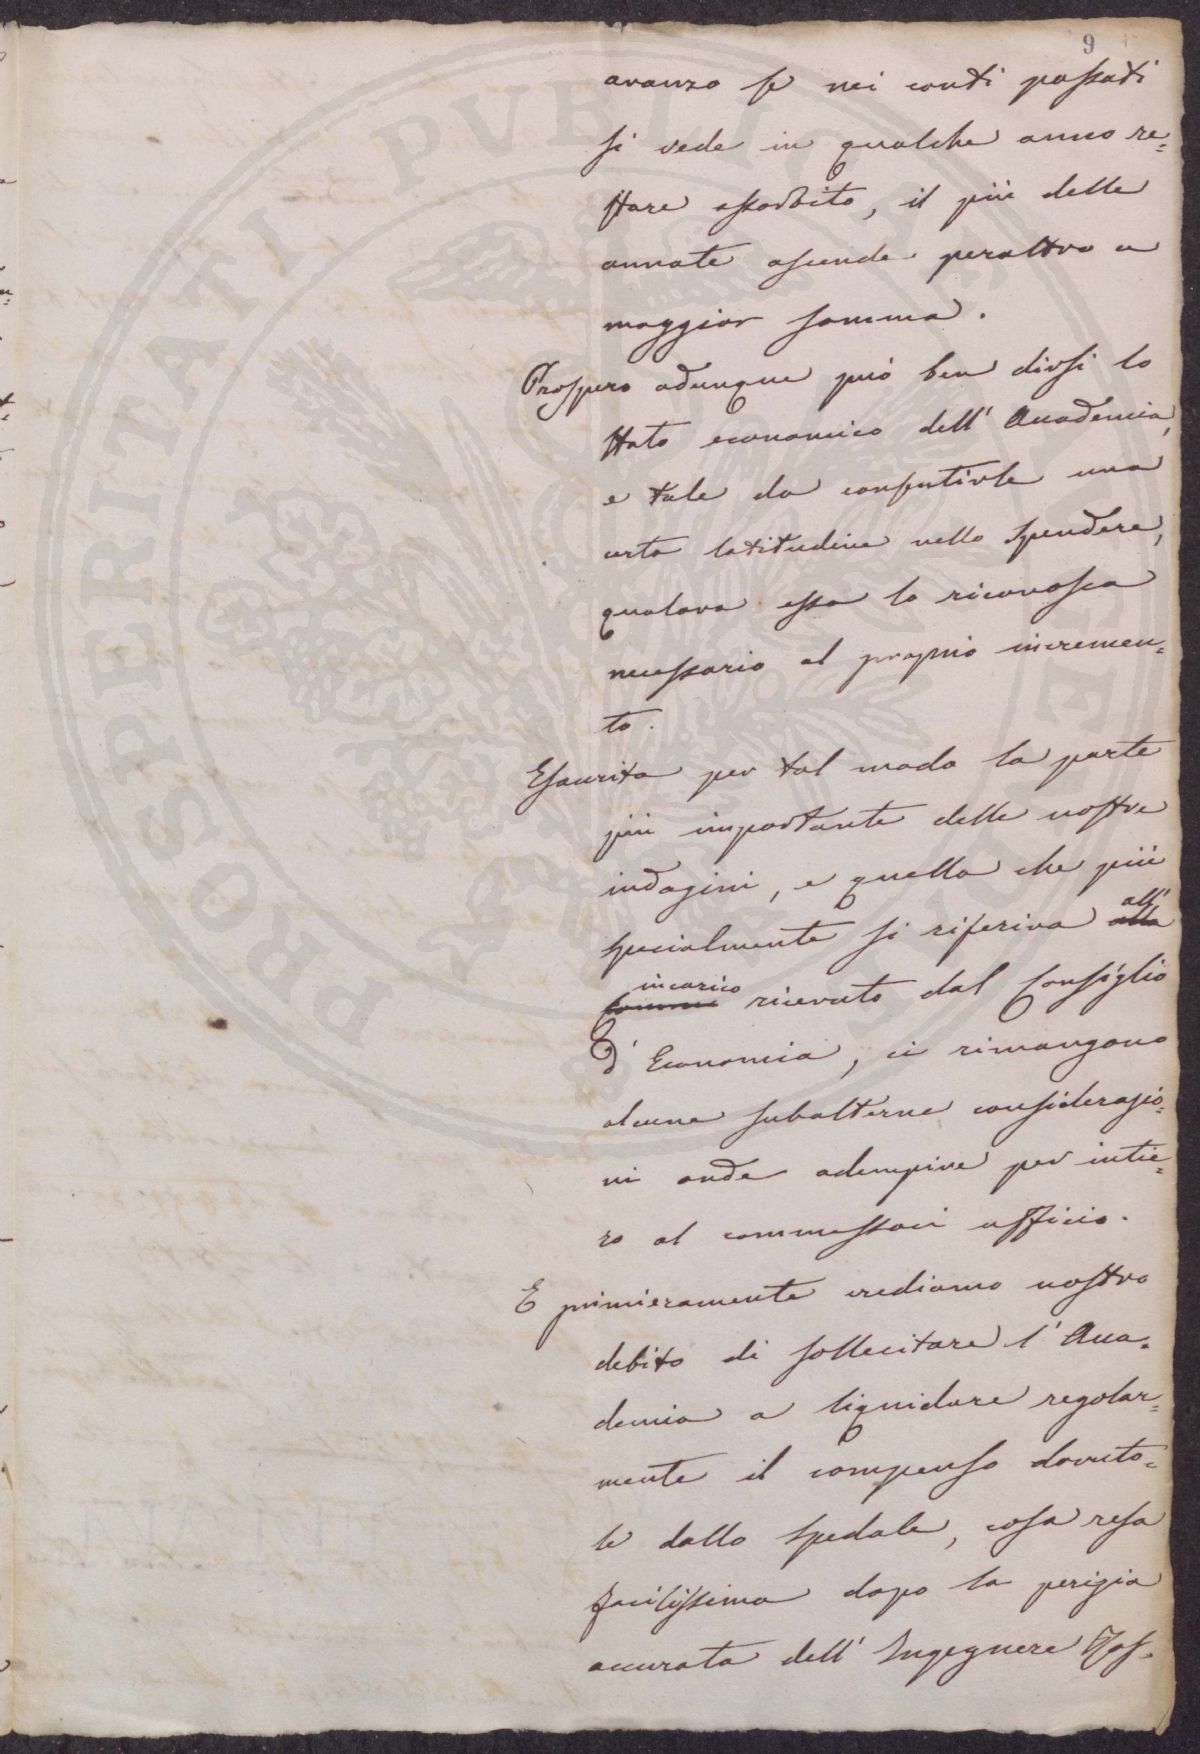 9
avanzo se nei conti passati
si vede in qualche anno re=
stare assorbito, il più delle
annate ascende peraltro a
maggior somma.
Prospero adunque può ben dirsi lo
stato economico dell' Accademia,
e tale da consentirle una
certa latitudine nello spendere,
qualora essa lo riconosca
necessario al proprio incremen=
to.
Esaurita per tal modo la parte
più importante delle nostre
indagini, e quella che più
specialmente si riferiva alla all'
incarico ricevuto dal Consiglio
d' Economia, ci rimangono
alcune subalterne considerazio=
ni onde adempire per intie=
ro al commessoci ufficio.
E primieramente crediamo nostro
debito di sollecitare l' Acca=
demia a liquidare regolar=
mente il compenso dovuto=
le dallo Spedale, cosa resa
facilissima dopo la perizia
accurata dell' Ingegnere
PROSPERITATI PVBLICAE